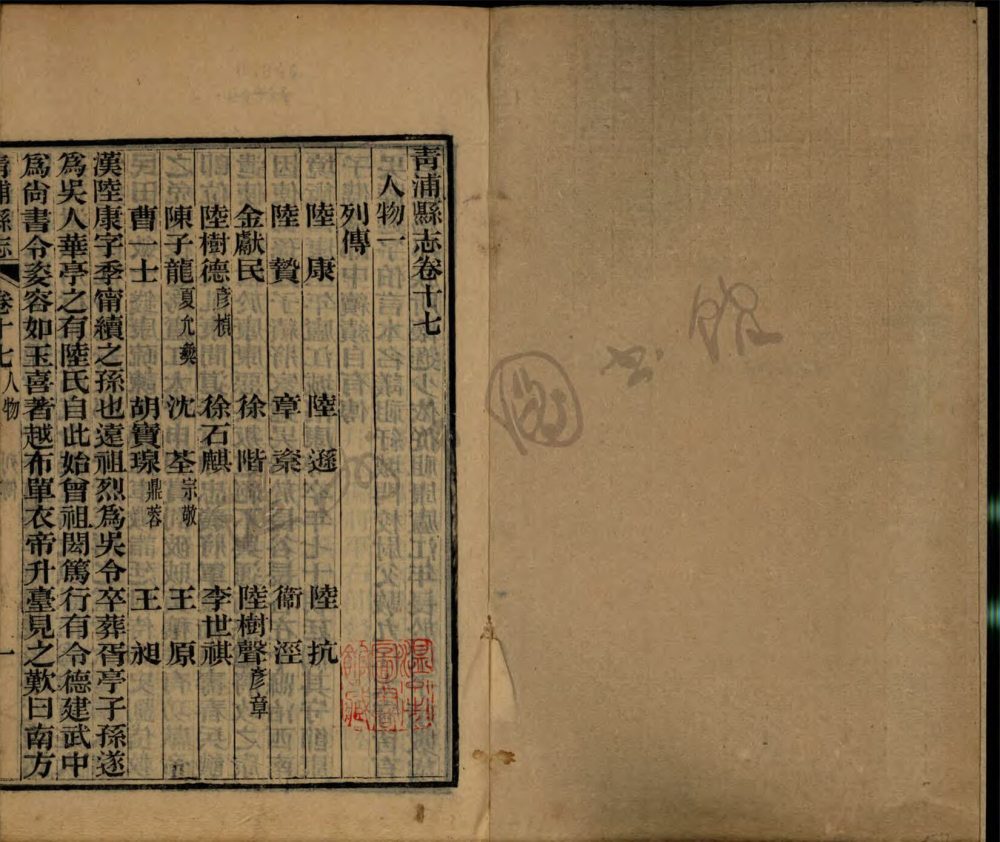 青浦縣志卷十七
人物一
列傳
陸康 陸遜 陸抗
陸贄 章楶 衞涇
金獻民 徐階 陸樹聲彦章
陸樹德彦楨 徐石麒 李世祺
陳子龍夏允彝 沈荃宗敬 王原
曹一士 胡寶瑔鼎蓉 王昶
漢陸康字季甯續之孫也遠祖烈爲吳令卒葬胥亭子孫遂
爲吳人華亭之有陸氏自此始曾祖閎篤行有令德建武中
爲尙書令姿容如玉喜著越布單衣帝升臺見之歎曰南方
青浦縣志 卷十七人物 一